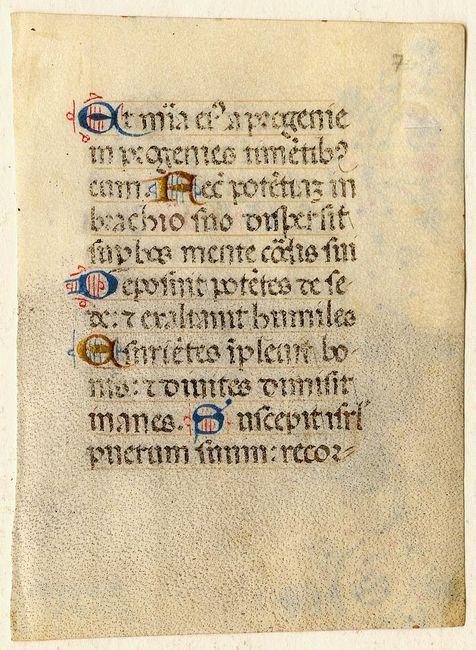 Et mīa eiꝰ a progenie
in progenies timētibꝰ
eum Fecꝭ potētiaꝫ in
brachio suo dispersit
supbos mente cordis sui
Deposuit potētes de se-
de: ⁊ exaltauit humiles
Esuriētes īpleuit bo-
nis: ⁊ diuites dimisit
inanes. Suscepit isrl̄
puerum suum: recor-